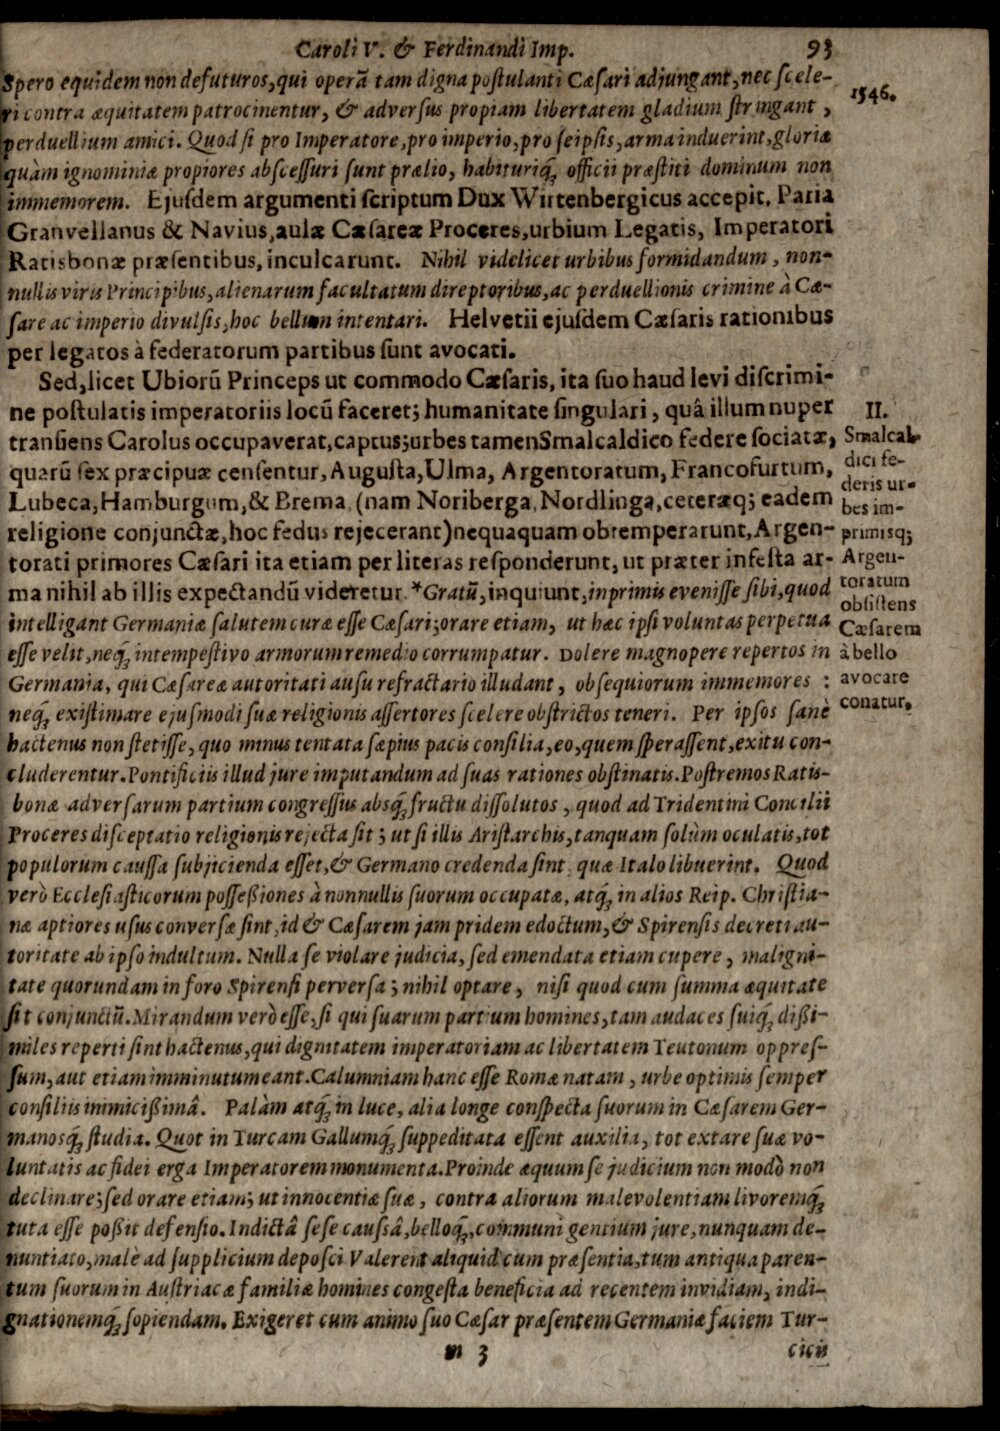 Caroli V. & Ferdinandi Imp. 93
Spero equidem non defuturos, qui operā tam digna postulanti Cæsari adjungant, nec scele-
ri contra æquitatem patrocinentur, & adversus propiam libertatem gladium stringant,
perduellium amici. Quod si pro Imperatore, pro imperio, pro seipsis, arma induerint, gloriæ
quàm ignominiæ propiores abscessuri sunt prælio, habituriq́ꝫ officii præstiti dominum non
immemorem. Ejusdem argumenti scriptum Dux Wirtenbergicus accepit. Paria
Granvellanus & Navius, aulæ Cæsareæ Proceres, urbium Legatis, Imperatori
Ratisbonæ præsentibus, inculcarunt. Nihil videlicet urbibus formidandum, non-
nullis viris Principibus, alienarum facultatum direptoribus, ac perduellionis crimine à Cæ-
sare ac imperio divulsis, hoc bellum intentari. Helvetii ejusdem Cæsaris rationibus
per legatos à federatorum partibus sunt avocati.
Sed, licet Ubiorū Princeps ut commodo Cæsaris, ita suo haud levi discrimi-
ne postulatis imperatoriis locū faceret; humanitate singulari, quâ illum nuper
transiens Carolus occupaverat, captus; urbes tamen Smalcaldico federe sociatæ,
quarū sex præcipuæ censentur, Augusta, Ulma, Argentoratum, Francofurtum,
Lubeca, Hamburgum, & Brema, (nam Noriberga, Nordlinga, ceteræq; eadem
religione conjunctæ, hoc fedus rejecerant) nequaquam obtemperarunt, Argen-
torati primores Cæsari ita etiam per literas responderunt, ut præter infesta ar-
ma nihil ab illis expectandū videretur. *Gratū, inquiunt, inprimis evenisse sibi, quod
intelligant Germaniæ salutem curæ esse Cæsari; orare etiam, ut hæc ipsi voluntas perpetua
esse velit, neq́ꝫ intempestivo armorum remedio corrumpatur. Dolere magnopere repertos in
Germania, qui Cæsareæ autoritati ausu refractario illudant, obsequiorum immemores :
neq́ꝫ existimare ejusmodi suæ religionis assertores scelere obstrictos teneri. Per ipsos sanè
hactenus non stetisse, quo minus tentata sæpius pacis consilia, eo, quem sperassent, exitu con-
cluderentur. Pontificiis illud jure imputandum ad suas rationes obstinatis. Postremos Ratis-
bonæ adversarum partium congressus absq́ꝫ fructu dissolutos, quod ad Tridentini Concilii
Proceres disceptatio religionis rejecta sit; ut si illis Aristarchis, tanquam solùm oculatis, tot
populorum caussa subjicienda esset, & Germano credenda sint, quæ Italo libuerint. Quod
verò Ecclesiasticorum possessiones à nonnullis suorum occupatæ, atq́ꝫ in alios Reip. Christia-
næ aptiores usus conversæ sint, id & Cæsarem jam pridem edoctum, & Spirensis decreti au-
toritate ab ipso indultum. Nulla se violare judicia, sed emendata etiam cupere, maligni-
tate quorundam in foro Spirensi perversa; nihil optare, nisi quod cum summa æquitate
sit conjunctū. Mirandum verò esse, si qui suarum partium homines, tam audaces suiq́ꝫ dissi-
miles reperti sint hactenus, qui dignitatem imperatoriam ac libertatem Teutonum oppres-
sum, aut etiam imminutum eant. Calumniam hanc esse Romæ natam, urbe optimis semper
consiliis inimicissimâ. Palàm atq́ꝫ in luce, alia longe conspecta suorum in Cæsarem Ger-
manosq́ꝫ studia. Quot in Turcam Gallumq́ꝫ suppeditata essent auxilia, tot extare suæ vo-
luntatis ac fidei erga Imperatorem monumenta. Proinde æquum se judicium non modò non
declinare; sed orare etiam; ut innocentiæ suæ, contra aliorum malevolentiam livoremq́ꝫ
tuta esse possit defensio. Indictâ sese caussâ, belloq́ꝫ, communi gentium jure, nunquam de-
nuntiato, malè ad supplicium deposci Valerent aliquid cum præsentia, tum antiqua paren-
tum suorum in Austriacæ familiæ homines congesta beneficia ad recentem invidiam, indi-
gnationemq́ꝫ sopiendam. Exigeret cum animo suo Cæsar præsentem Germaniæ faciem Tur-
m 3 cicis
1546.
II.
Smalcal-
dici fe-
deris ur-
bes im-
primisq;
Argen-
toratum
obsistens
Cæsarem
à bello
avocare
conatur.